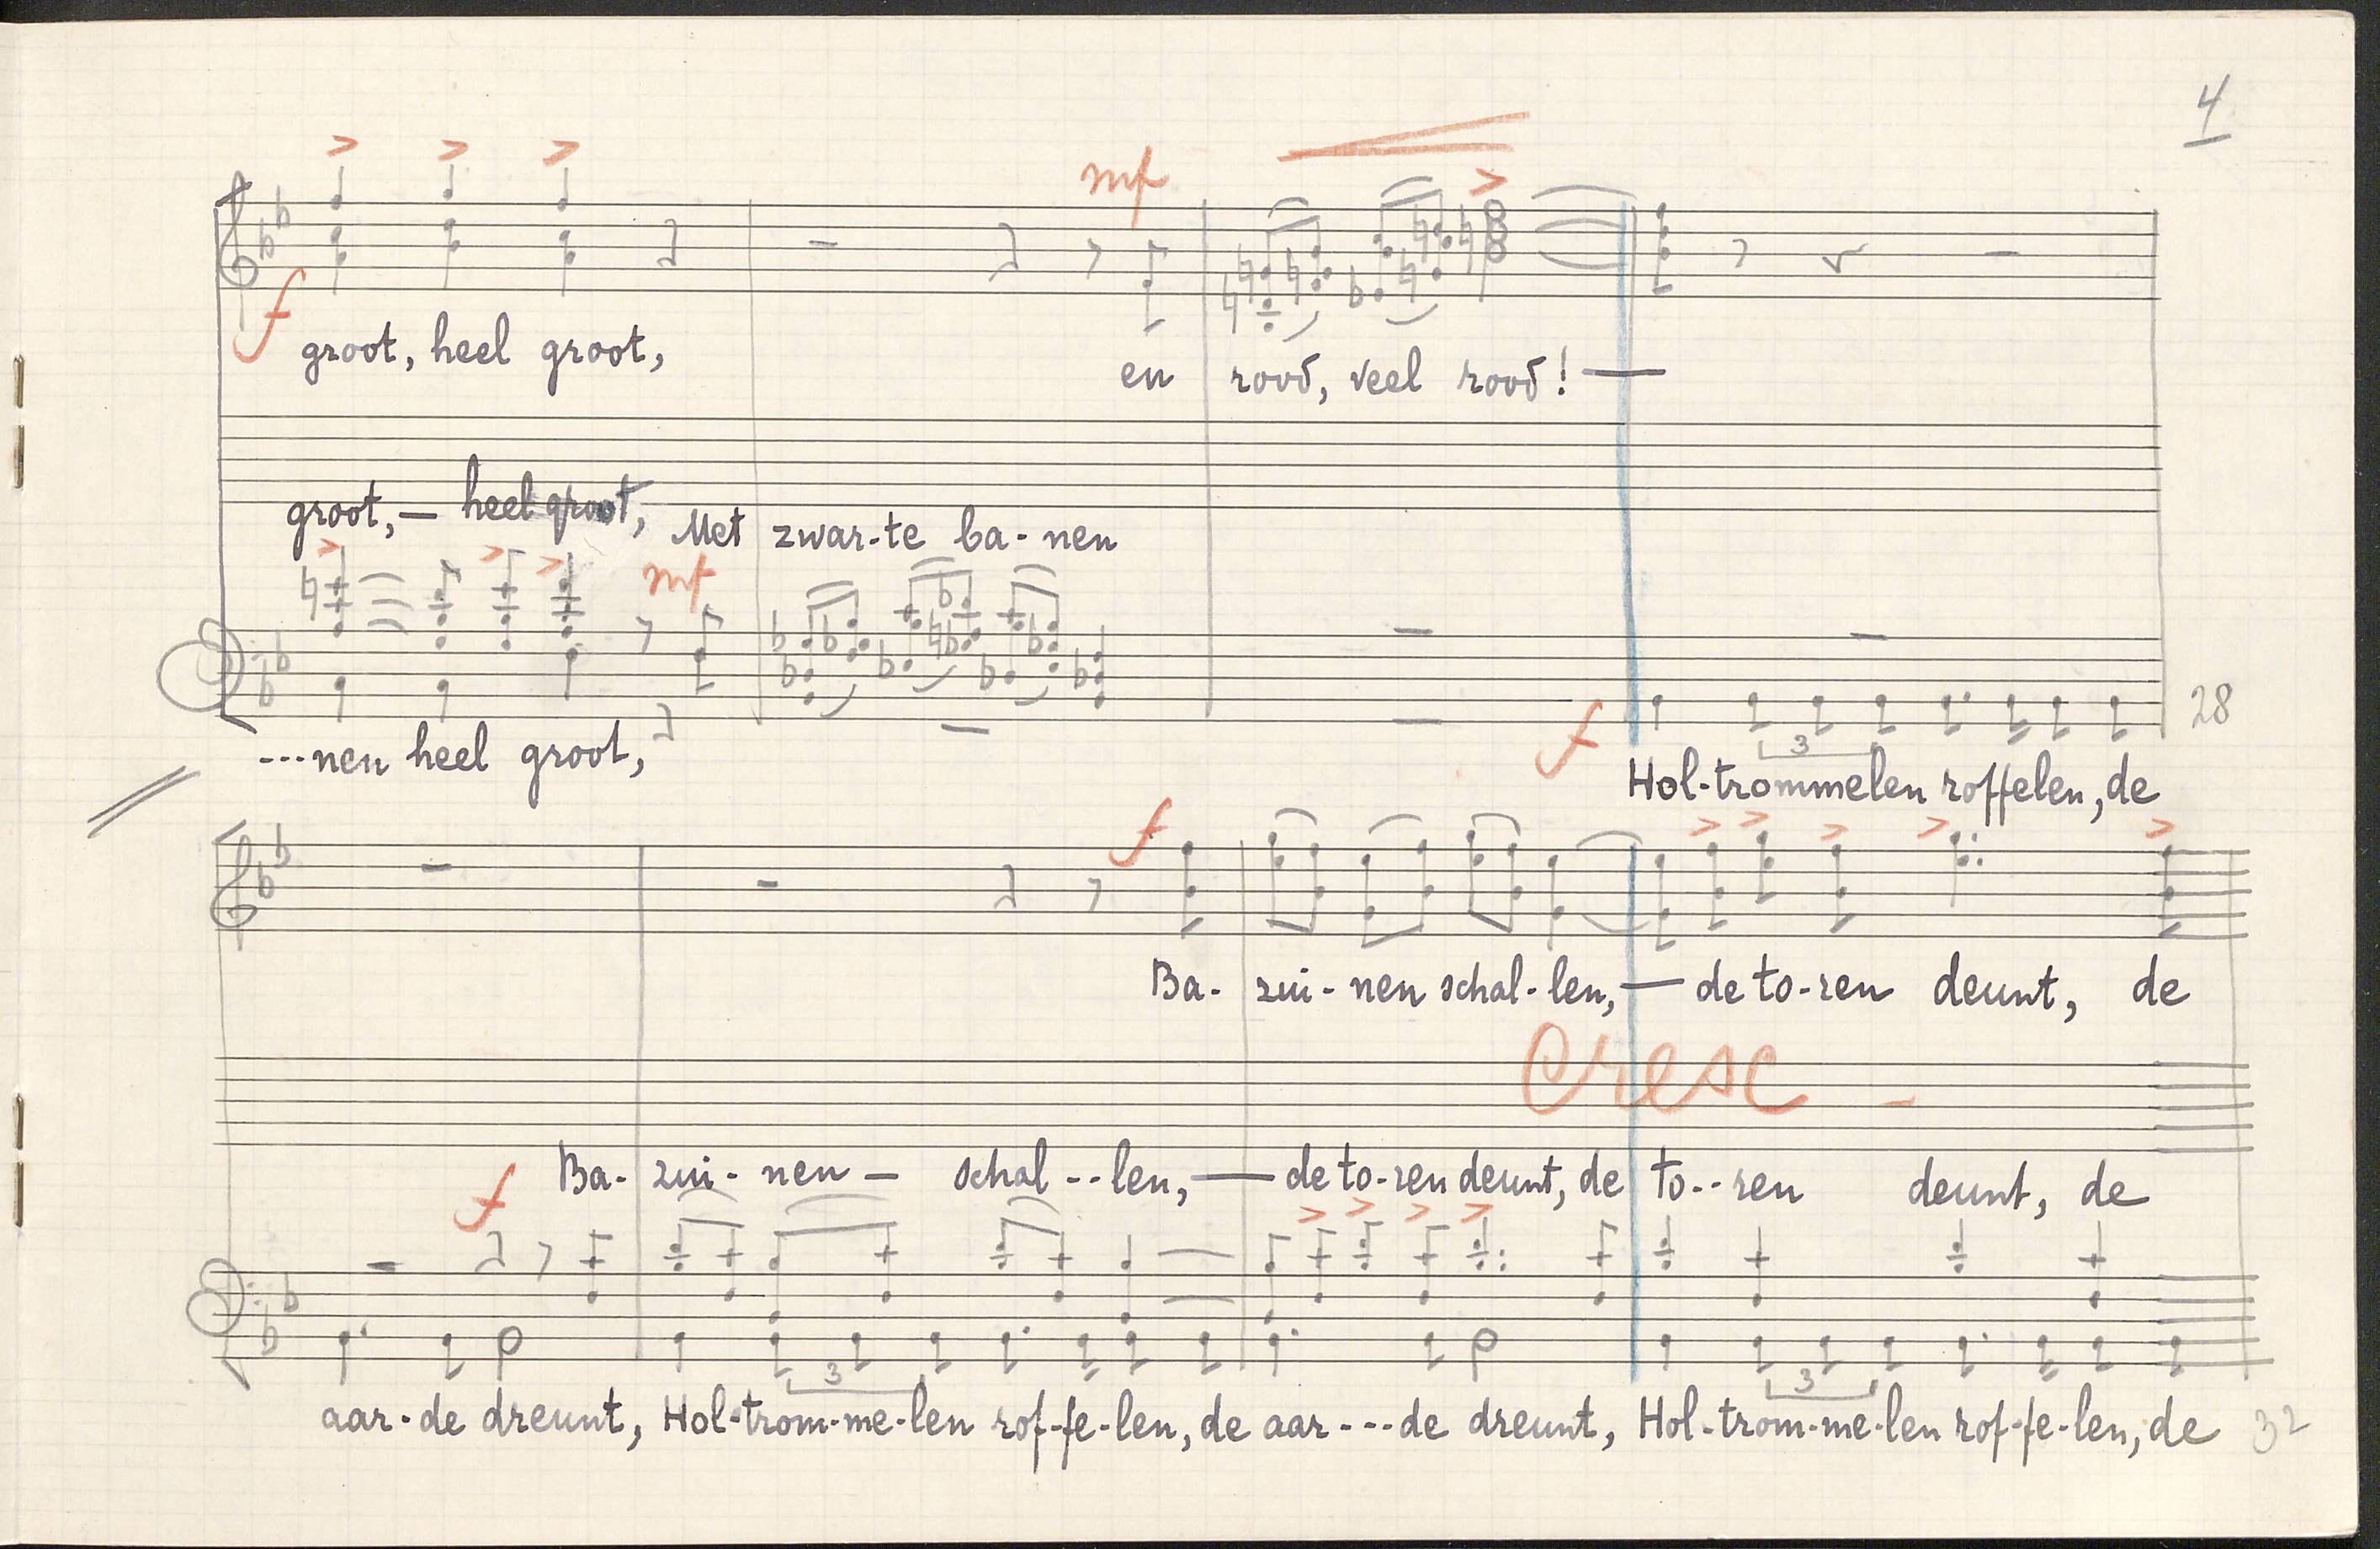 4
mf
f
groot, heel groot,
en rood, veel rood! —
groot, — heel groot, Met zwar-te ba-nen
mf
28
---nen heel groot,
f
3
Hol-trommelen roffelen, de
f
Ba- zui-nen schal-len, — de to-ren deunt, de
cresc -
f
Ba- zui-nen — schal--len, — de to-ren deunt, de to--ren deunt, de
3
3
aar-de dreunt, Hol-trom-me-len rof-fe-len, de aar---de dreunt, Hol-trom-me-len rof-fe-len, de 32